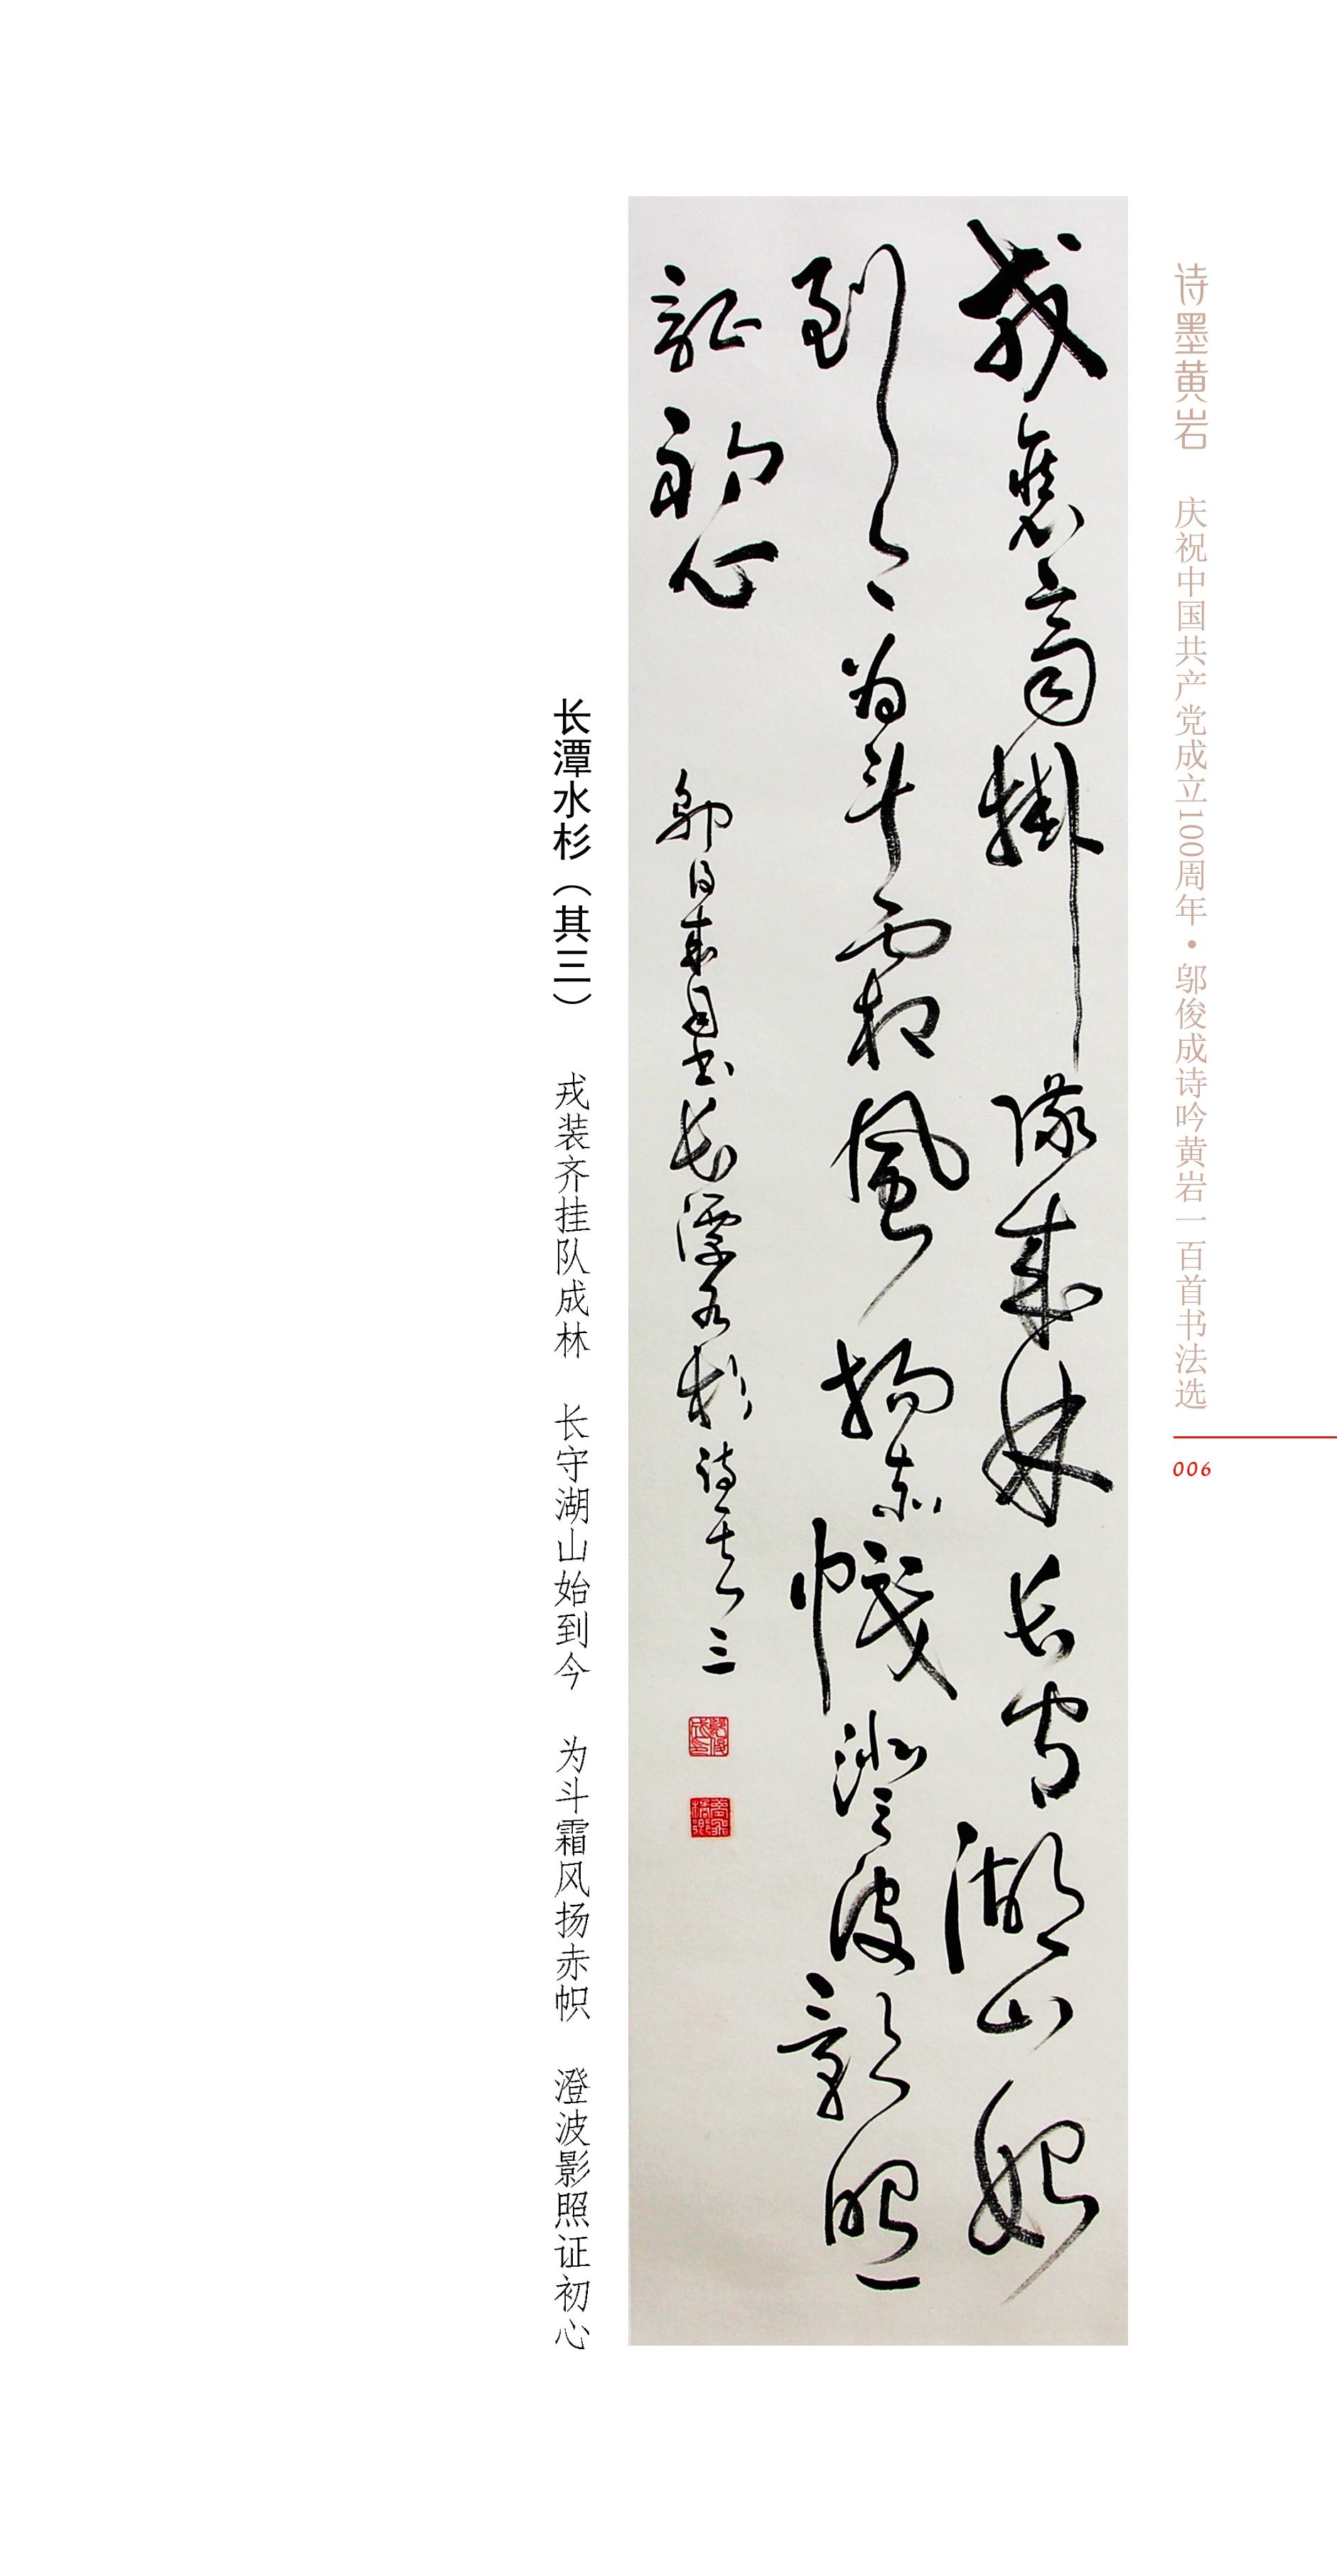 诗墨黄岩 庆祝中国共产党成立100周年·邬俊成诗吟黄岩一百首书法选
006
戎裝齊掛隊成林长守湖山始
到今为斗霜風揚赤幟澄波影照
証初心
邬俊成自书长潭水杉诗其三
长潭水杉（其三） 戎装齐挂队成林 长守湖山始到今 为斗霜风扬赤帜 澄波影照证初心